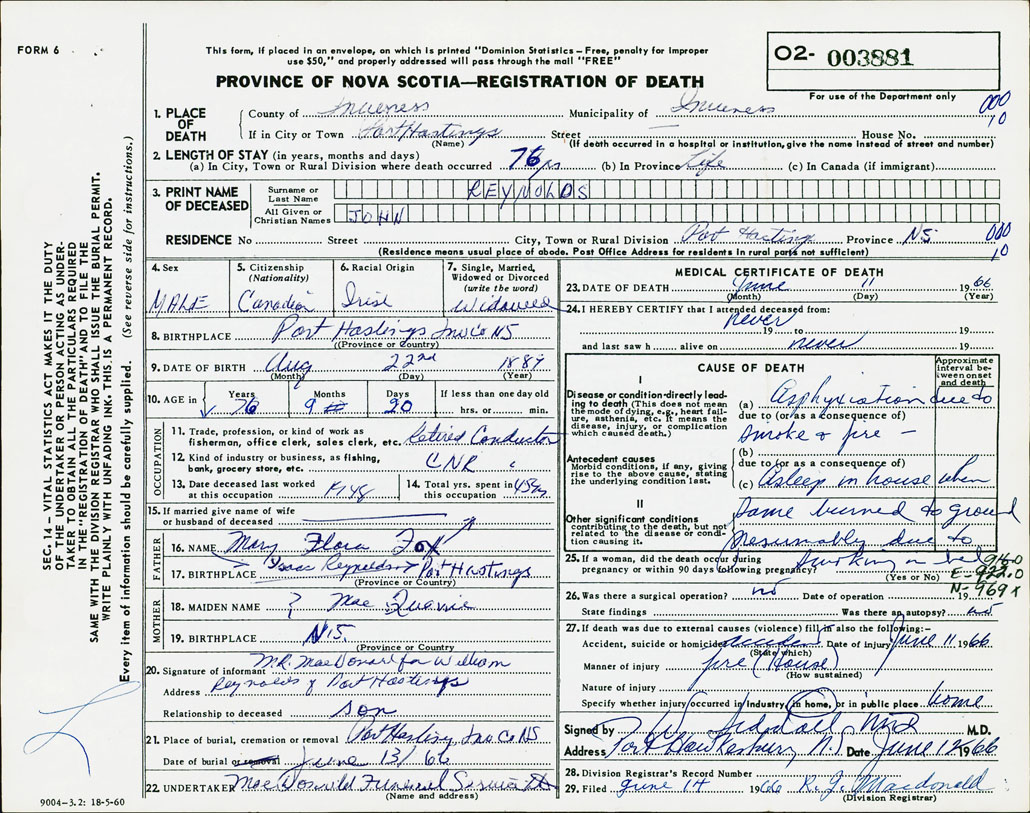 FORM 6
This form, if placed in an envelope, on which is printed "Dominion Statistics – Free, penalty for improper
use $50," and properly addressed will pass through the mail "FREE"
PROVINCE OF NOVA SCOTIA—REGISTRATION OF DEATH
O2- 003881
For use of the Department only
000
10
SEC. 14 – VITAL STATISTICS ACT MAKES IT THE DUTY
OF THE UNDERTAKER OR PERSON ACTING AS UNDER-
TAKER TO OBTAIN ALL THE PARTICULARS REQUIRED
IN THE "REGISTRATION OF DEATH" AND TO FILE THE
SAME WITH THE DIVISION REGISTRAR WHO SHALL ISSUE THE BURIAL PERMIT.
WRITE PLAINLY WITH UNFADING INK. THIS IS A PERMANENT RECORD.
Every item of information should be carefully supplied. (See reverse side for instructions.)
1. PLACE OF DEATH
County of Inverness Municipality of Inverness
If in City or Town Port Hastings Street — House No.
(Name) (If death occurred in a hospital or institution, give the name instead of street and number)
2. LENGTH OF STAY (in years, months and days)
(a) In City, Town or Rural Division where death occurred 76 yrs (b) In Province Life (c) In Canada (if immigrant)
3. PRINT NAME OF DECEASED
Surname or Last Name REYNOLDS
All Given or Christian Names JOHN
RESIDENCE No Street City, Town or Rural Division Port Hastings Province NS
000
10
(Residence means usual place of abode. Post Office Address for residents in rural parts not sufficient)
4. Sex
MALE
5. Citizenship
(Nationality)
Canadian
6. Racial Origin
Irish
7. Single, Married,
Widowed or Divorced
(write the word)
Widowed
8. BIRTHPLACE Port Hastings Inv Co NS
(Province or Country)
9. DATE OF BIRTH Aug 22nd 1889
(Month) (Day) (Year)
10. AGE in
Years Months Days If less than one day old
76 9 20 hrs. or min.
OCCUPATION
11. Trade, profession, or kind of work as
fisherman, office clerk, sales clerk, etc. Retired Conductor
12. Kind of industry or business, as fishing,
bank, grocery store, etc. CNR
13. Date deceased last worked
at this occupation 1948
14. Total yrs. spent in
this occupation 45 yrs
15. If married give name of wife
or husband of deceased
FATHER
16. NAME Mary Flora Fox
17. BIRTHPLACE Isaac Reynolds Port Hastings
(Province or Country)
MOTHER
18. MAIDEN NAME Mae
19. BIRTHPLACE N.S.
(Province or Country)
20. Signature of informant M.R. MacDonald for William
Address Reynolds Port Hastings
Relationship to deceased son
21. Place of burial, cremation or removal Port Hastings Inv Co NS
Date of burial or removal June 13/66
22. UNDERTAKER MacDonald Funeral Service
(Name and address)
9004–3.2: 18-5-60
MEDICAL CERTIFICATE OF DEATH
23. DATE OF DEATH June 11 1966
(Month) (Day) (Year)
24. I HEREBY CERTIFY that I attended deceased from:
never
19 to 19
and last saw h alive on never 19
CAUSE OF DEATH
Approximate
interval be-
tween onset
and death
I
Disease or condition directly lead-
ing to death (This does not mean
the mode of dying, e.g., heart fail-
ure, asthenia, etc. It means the
disease, injury, or complication
which caused death.)
(a) Asphyxiation due to
due to (or as a consequence of)
smoke & fire –
Antecedent causes
Morbid conditions, if any, giving
rise to the above cause, stating
the underlying condition last.
(b)
due to (or as a consequence of)
(c) Asleep in house when
II
Other significant conditions
contributing to the death, but not
related to the disease or condi-
tion causing it.
same burned to ground
Presumably due to
smoking in bed
25. If a woman, did the death occur during
pregnancy or within 90 days following pregnancy?
(Yes or No)
N- 969
26. Was there a surgical operation? no Date of operation 19
State findings Was there an autopsy? no
27. If death was due to external causes (violence) fill in also the following:–
Accident, suicide or homicide accident Date of injury June 11 1966
(State which)
Manner of injury fire (House)
(How sustained)
Nature of injury
Specify whether injury occurred in industry, in home, or in public place home
Signed by M.D.
Address Port Hawkesbury N.S. Date June 12 1966
28. Division Registrar's Record Number
29. Filed June 14 1966 R. J. Macdonald
(Division Registrar)